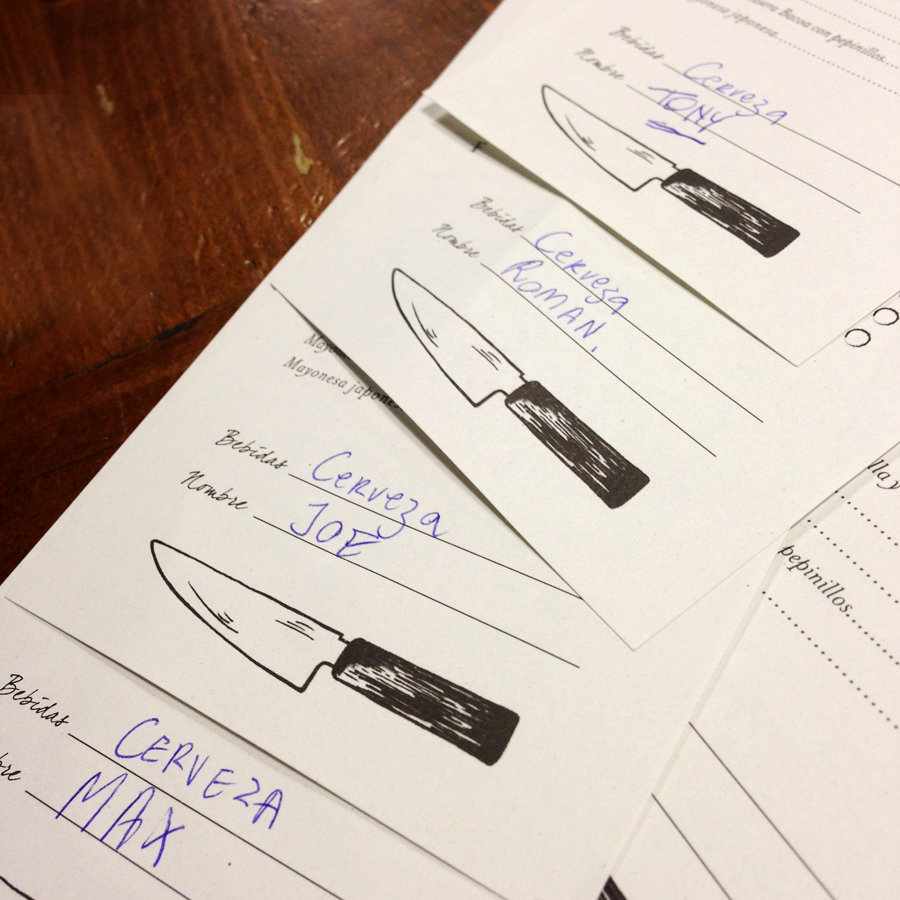 Bacoa con pepinillos
japonesa
Bebidas Cerveza
Nombre TONY
Bebidas Cerveza
Nombre ROMAN.
Mayonesa japones
Bebidas Cerveza
Nombre JOE
lla y
pepinillos
Bebidas CERVEZA
bre MAX